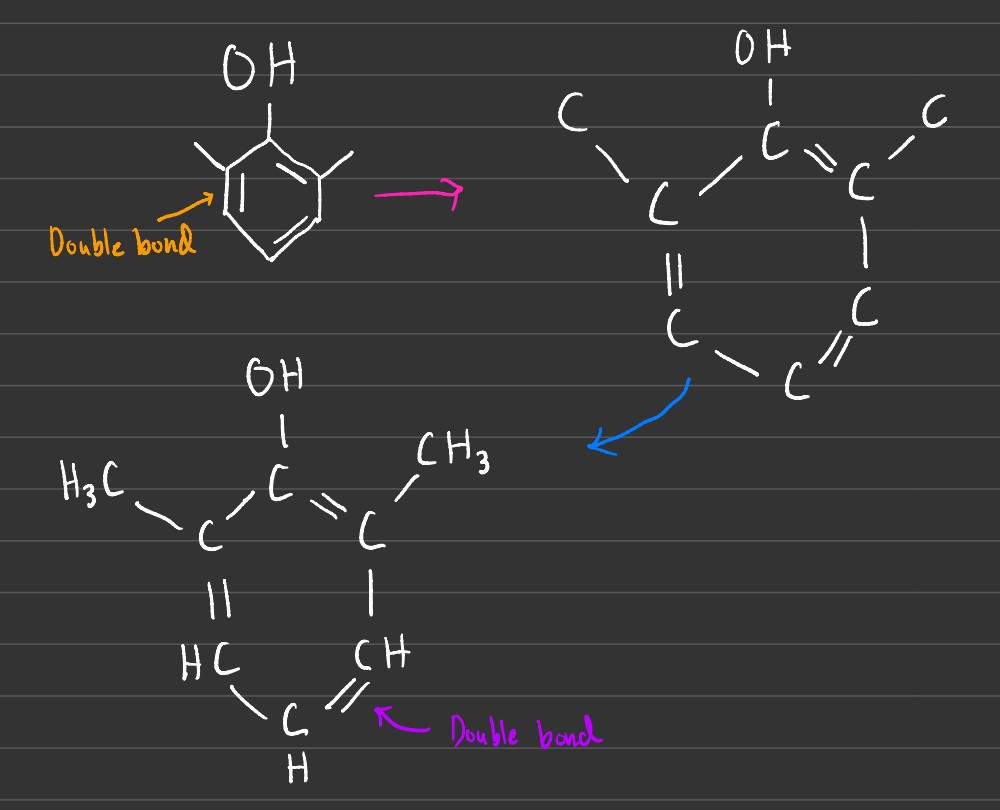 OH
Double bond
OH
C
C
C
C
C
C
C
C
OH
H₃C
C
CH₃
C
C
HC
CH
C
H
Double bond